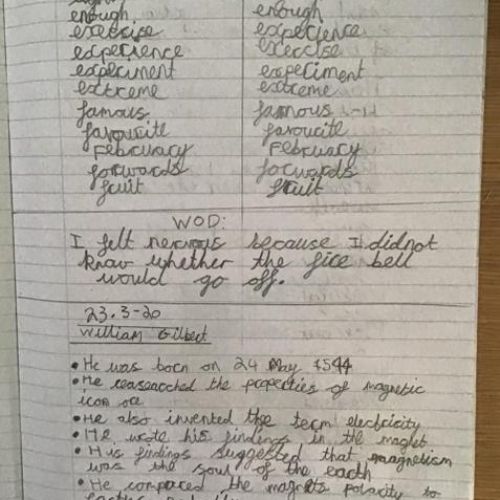 enough enough
exercise experience
experience exercise
experiment experiment
extreme extreme
famous famous
favourite favourite
February February
forwards forwards
fruit fruit
WOD:
I felt nervous because I did not
know whether the fire bell
would go off.
23.3-20
William Gilbert
• He was born on 24 May 1544
• He reasearched the properties of magnetic
iron ore
• He also invented the term electricity
• He wrote his findings in the
• His findings suggested that magnetism
was the soul of the earth
• He compared the magnets polarity to